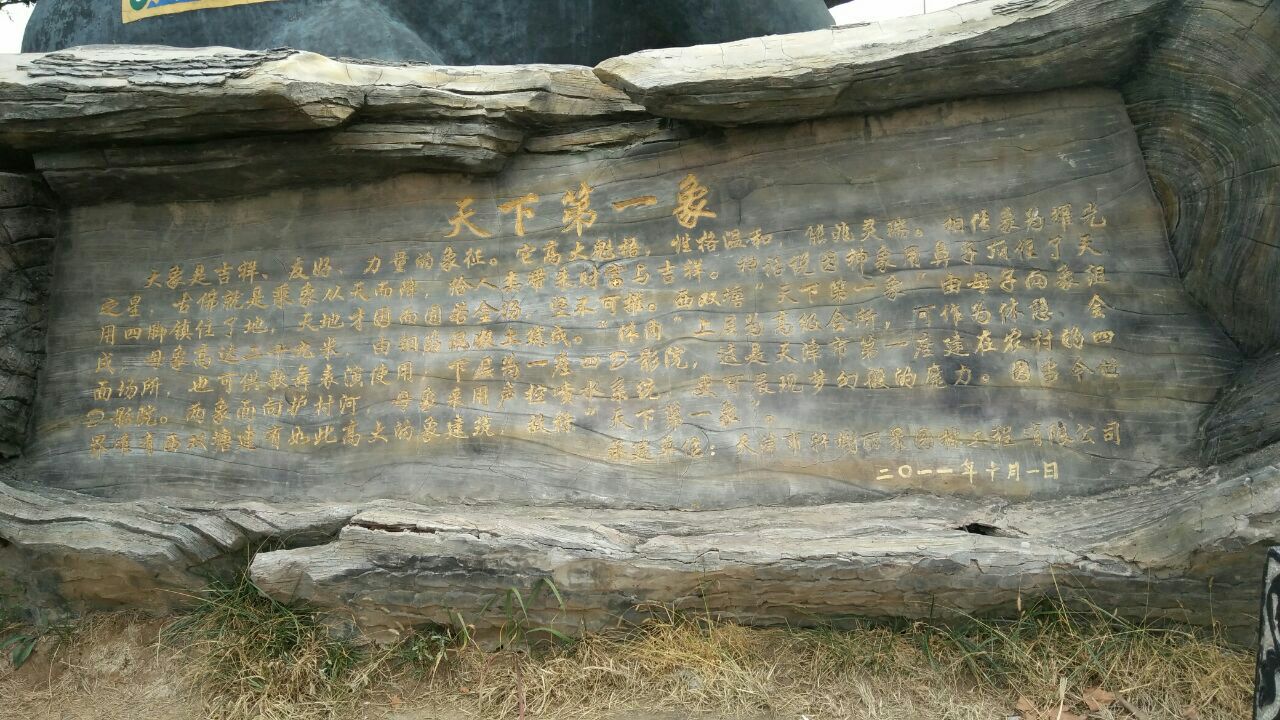 天下第一象
大象是吉祥、友好、力量的象征。它高大魁梧，性格温和，能兆灵瑞。相传象为耀光
之星，古佛就是乘象从天而降，给人类带来财富与吉祥。神话说四神象用鼻子顶住了天
用四脚镇住了地，天地才固而固若金汤，坚不可摧。西双塘“天下第一象”由母子两象组
成，母象高达二十九米，由钢筋混凝土铸成。上层为高级会所，可作为休憩、会
面场所，也可供歌舞表演使用，下层为一座四D影院，这是天津市第一座建在农村的四
D影院。两象面向护村河，母象采用声控喷水系统，更可展现梦幻般的魔力。因当今世
界唯有西双塘建有如此高大的象建筑，故称“天下第一象”。
承建单位：天津市 园林工程有限公司
二〇一一年十月一日